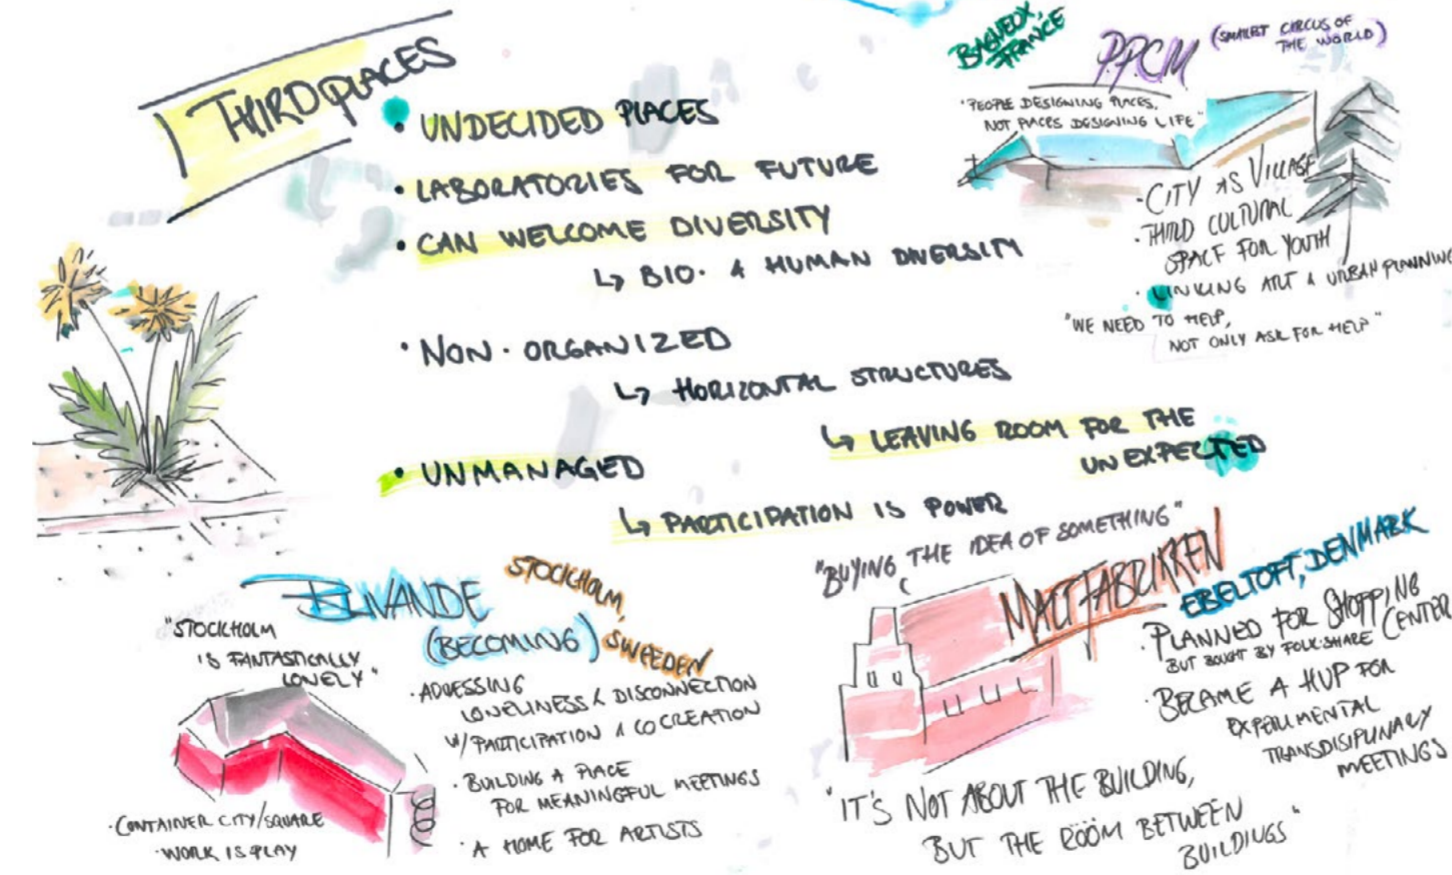 THIRD PLACES
• UNDECIDED PLACES
• LABORATORIES FOR FUTURE
• CAN WELCOME DIVERSITY
↳ BIO- & HUMAN DIVERSITY
• NON-ORGANIZED
↳ HORIZONTAL STRUCTURES
↳ LEAVING ROOM FOR THE
UNEXPECTED
• UNMANAGED
↳ PARTICIPATION IS POWER
BAGNEUX,
FRANCE
P.P.C.M
(SMALLEST CIRCUS OF
THE WORLD)
"PEOPLE DESIGNING PLACES,
NOT PLACES DESIGNING LIFE"
• CITY AS VILLAGE
• THIRD CULTURAL
SPACE FOR YOUTH
• LINKING ART & URBAN PLANNING
"WE NEED TO HELP,
NOT ONLY ASK FOR HELP"
BLIVANDE
(BECOMING)
STOCKHOLM,
SWEEDEN
"STOCKHOLM
IS FANTASTICALLY
LONELY"
• ADRESSING
LONELINESS & DISCONNECTION
W/ PARTICIPATION & COCREATION
• BUILDING A PLACE
FOR MEANINGFUL MEETINGS
• A HOME FOR ARTISTS
• CONTAINER CITY/SQUARE
• WORK IS PLAY
"BUYING THE IDEA OF SOMETHING"
MALTFABRIKKEN
EBELTOFT, DENMARK
• PLANNED FOR SHOPPING CENTER
BUT BOUGHT BY FOLK-SHARE
• BECAME A HUP FOR
EXPERIMENTAL
TRANSDISIPLINARY
MEETINGS
"IT'S NOT ABOUT THE BUILDING,
BUT THE RÖÖM BETWEEN
BUILDINGS"